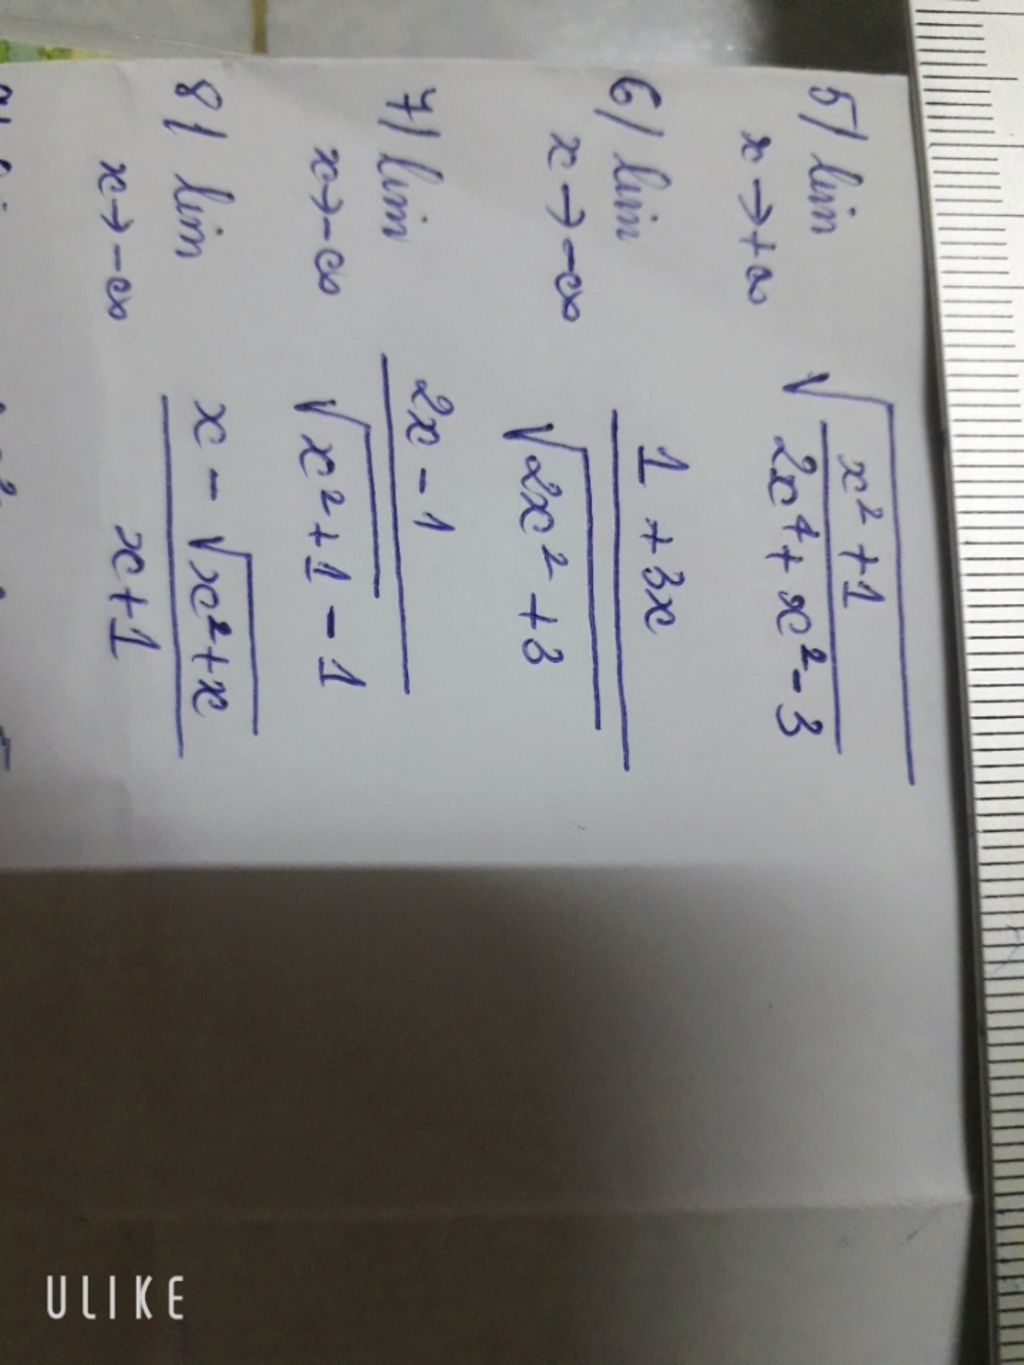 5/ lim x→+∞ √((x²+1)/(2x⁴+x²-3))
6/ lim x→-∞ (1+3x)/√(2x²+3)
7/ lim x→-∞ (2x-1)/(√(x²+1)-1)
8/ lim x→-∞ (x-√(x²+x))/(x+1)
ULIKE